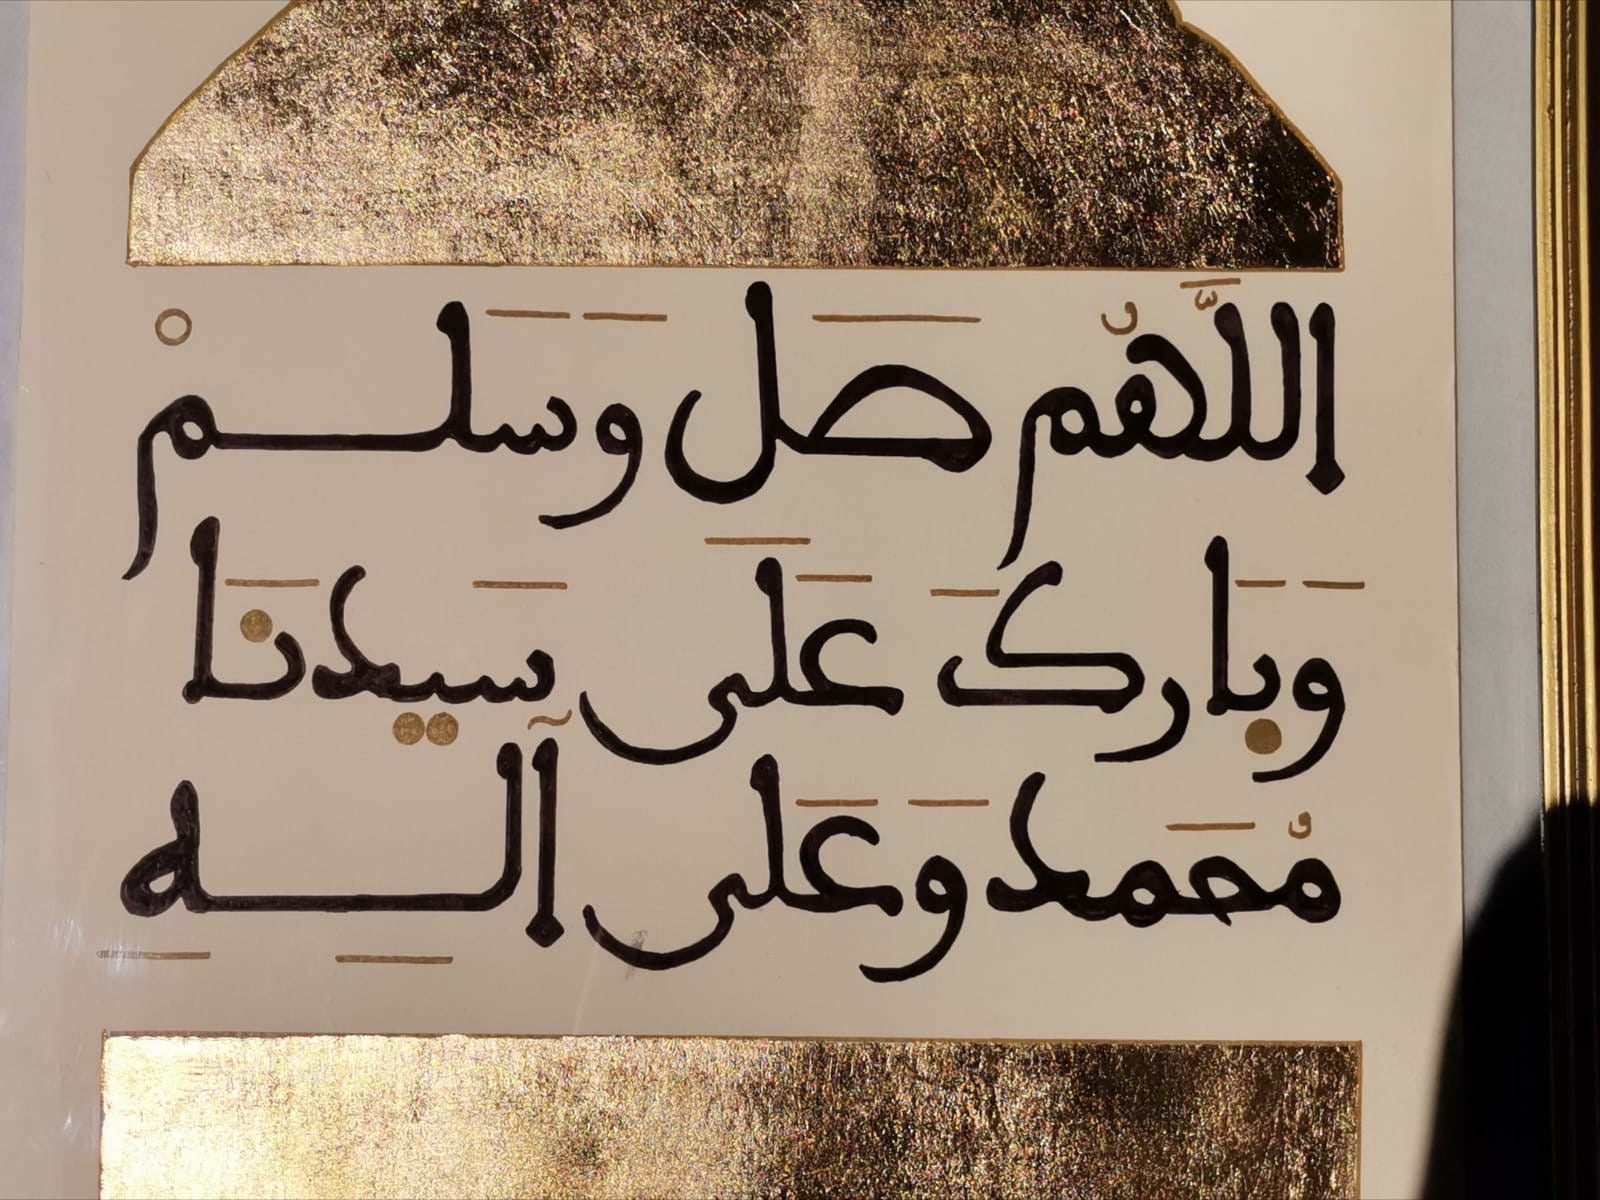 اللَّهُم صَل وَسَلمْ
وَبَارَك عَلَى سَيدنَا
مُحَمد وَعَلى آلِهِ